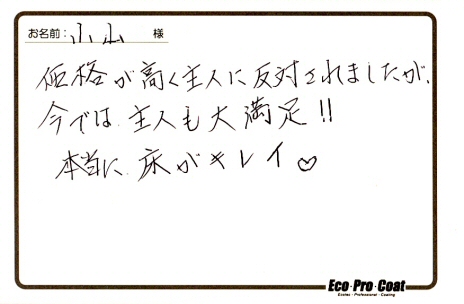 お名前：小山 様
価格が高く主人に反対されましたが、
今では、主人も大満足!!
本当に床がキレイ♡
Eco・Pro・Coat
Ecotex・Professional・Coating